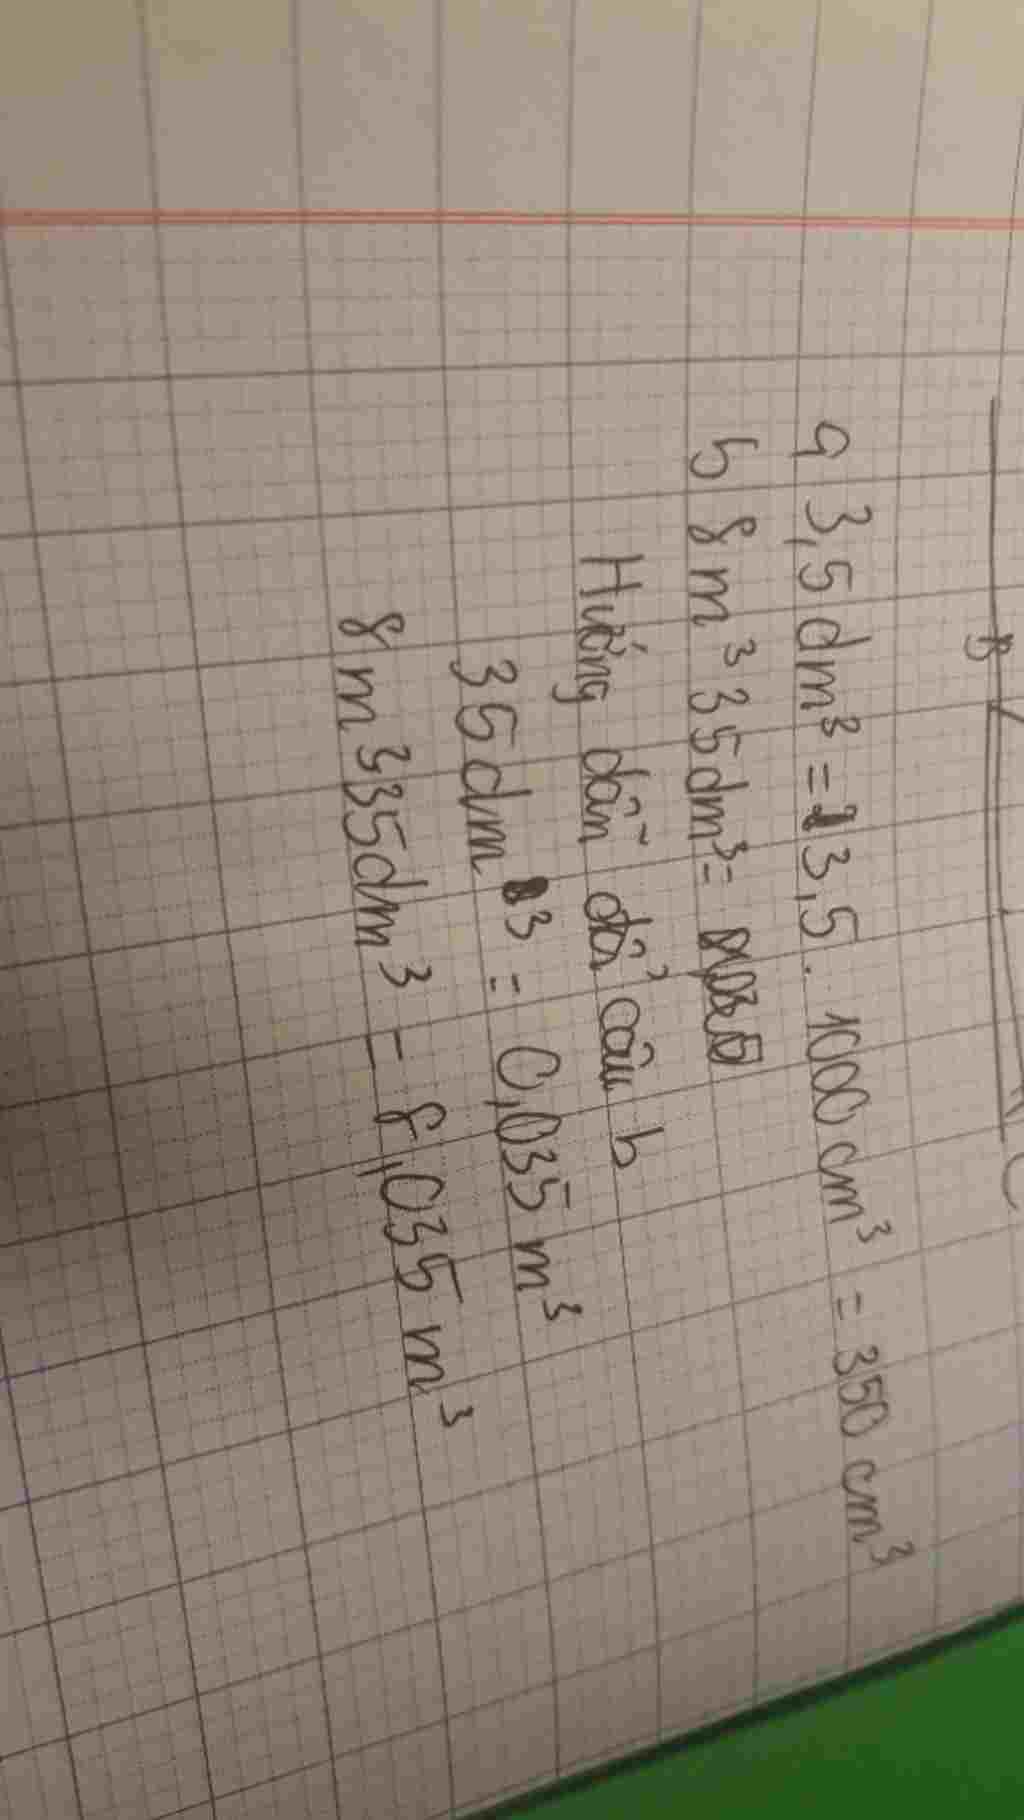 B C
a 3,5dm³ = 3,5 . 1000 cm³ = 350 cm³
b 8m³35dm³ =
Hướng dẫn đổi câu b
35dm³ = 0,035m³
8m³35dm³ = 8,035m³